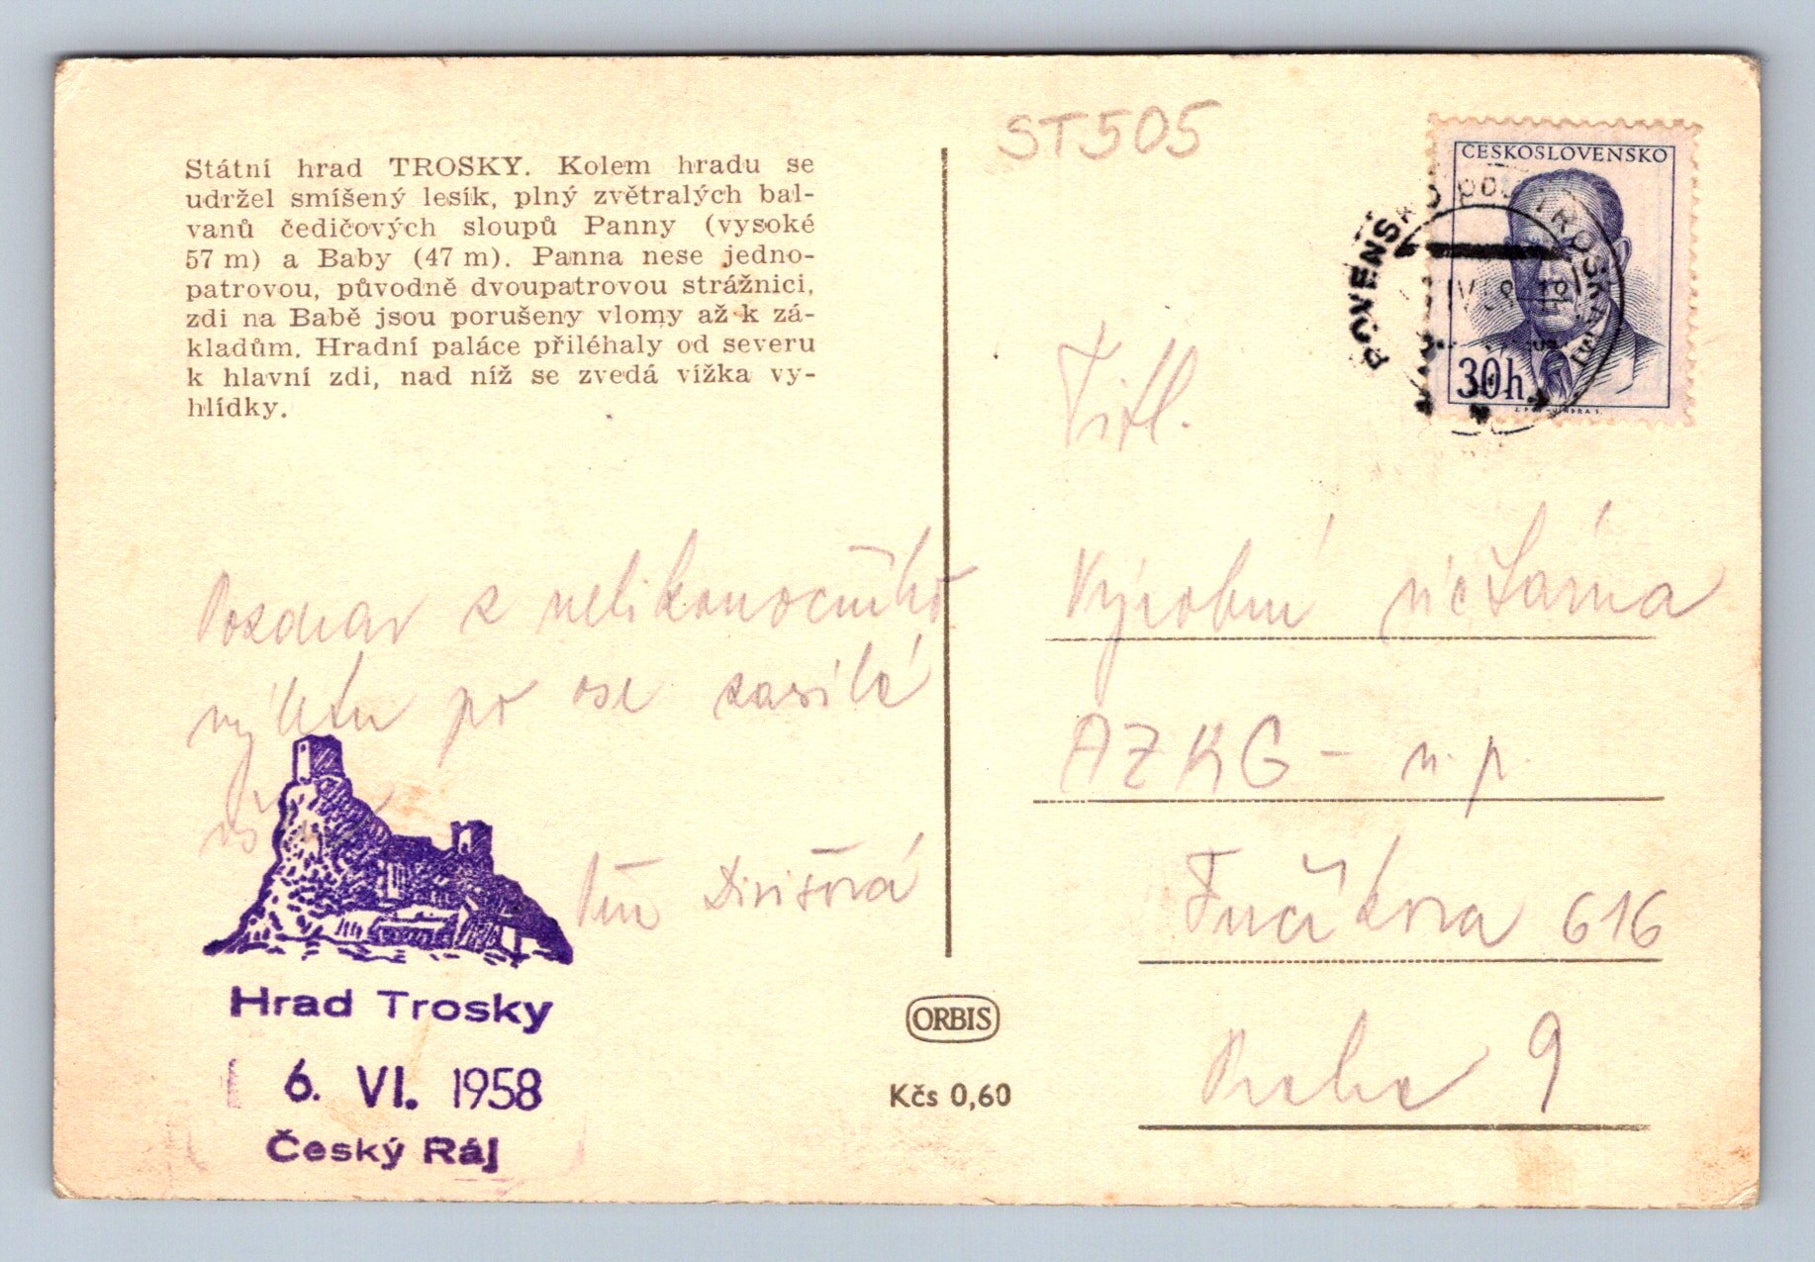 Státní hrad TROSKY. Kolem hradu se
udržel smíšený lesík, plný zvětralých bal-
vanů čedičových sloupů Panny (vysoké
57 m) a Baby (47 m). Panna nese jedno-
patrovou, původně dvoupatrovou strážnici,
zdi na Babě jsou porušeny vlomy až k zá-
kladům. Hradní paláce přiléhaly od severu
k hlavní zdi, nad níž se zvedá vížka vy-
hlídky.
Pozdrav z velikonočního
výletu po ose zasílá
Divišová
Hrad Trosky
6. VI. 1958
Český Ráj
ORBIS
Kčs 0,60
ST505
ČESKOSLOVENSKO
30h
ROVENSKO POD TROSKAMI
Titl.
Výrobní účtárna
AZKG - n. p.
Fučíkova 616
Praha 9